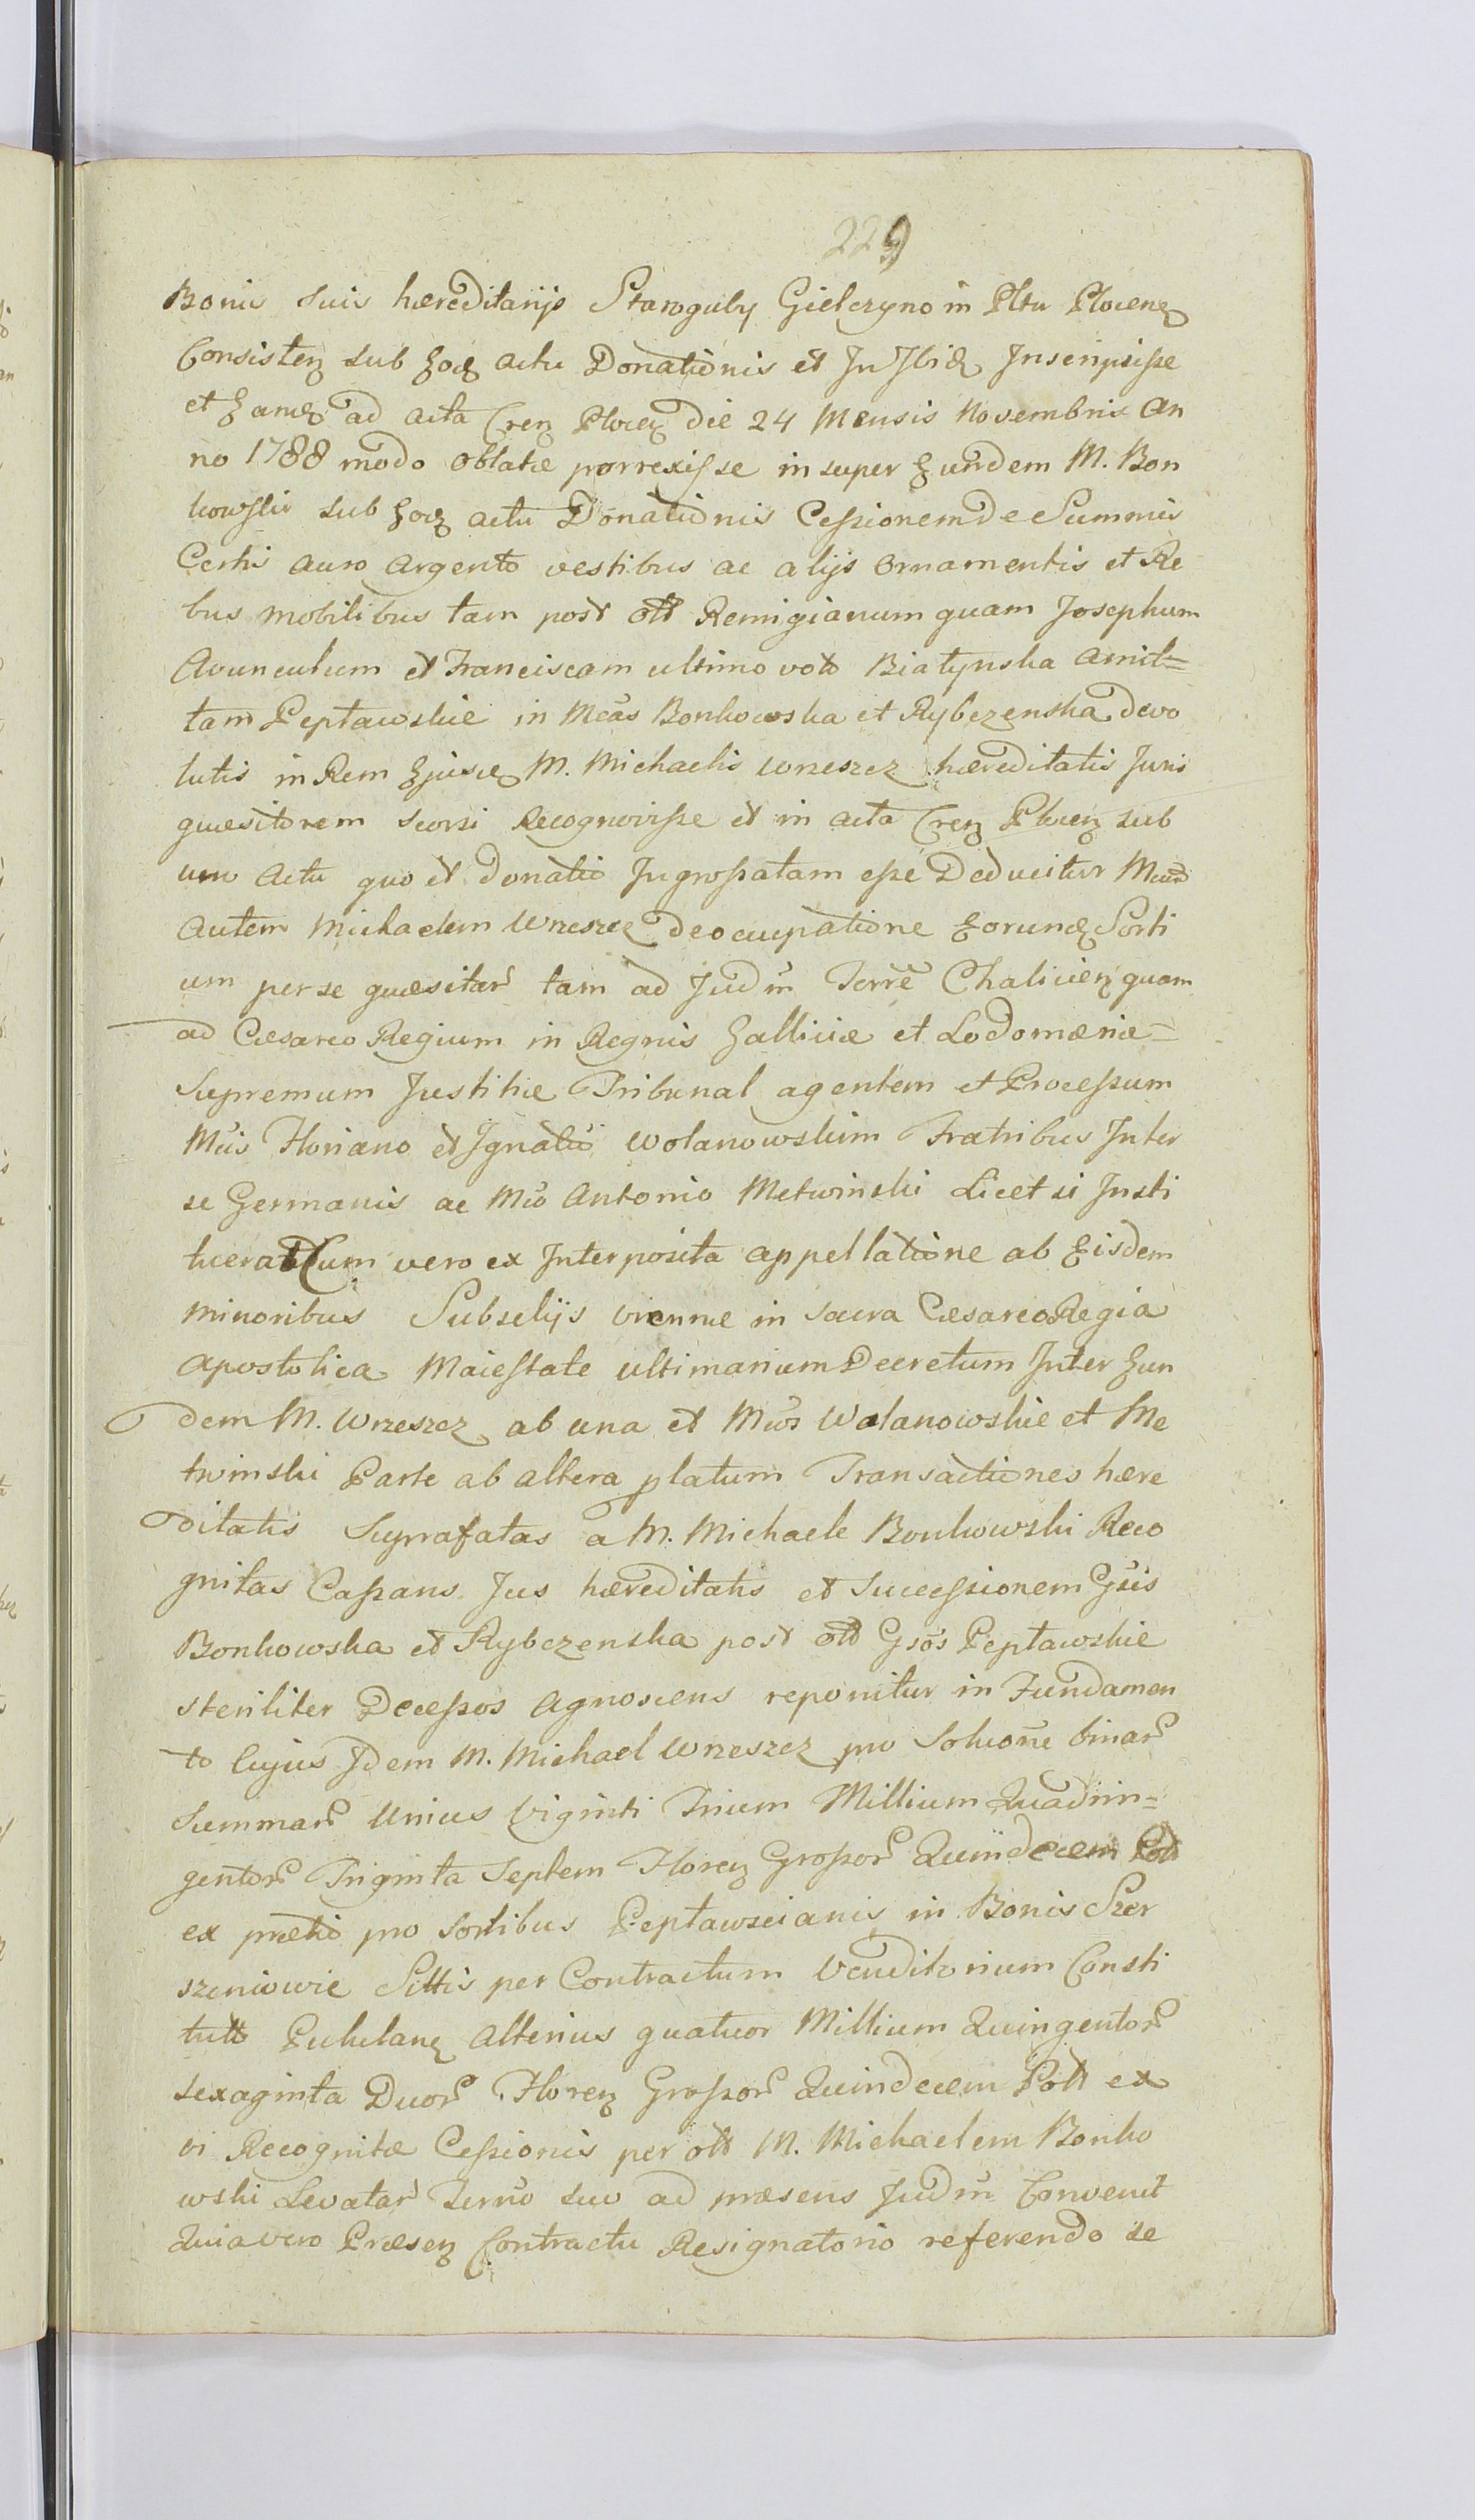 229
Bonis suis hæreditarijs Staroguby Gielczyno in Pltu Plocenz
Consistenz sub Eodz actu Donationis et Inscripsisse
et Eamdz ad acta Cren Plocen die 24 Mensis Novembris An
no 1788 modo oblatæ porrexisse in super Eundem M. Bon
kowski sub Eodz actu Donationis Cessionem de Summis
Certis auro argento vestibus ac alijs Ornamentis et Re
bus mobilibus tam post olt Remigianum quam Josephum
Avunculum et Franciscam ultimo voto Białynska Amit=
tam Peptawskie in Mcas Bonkowska et Rybczenska devo
lutis in Rem Ejusdz M. Michaelis Wrzeszcz hæreditatis Juris
quæsitorem seorsi Recognovisse et in acta Cren Plocen sub
uno Actu quo et Donatio Ingrossatam esse Deducitur
Autem Michaelem Wrzeszcz de occupatione Eorundz Sorti
um per se quæsitar tam ad Judm Terrē Chalicien quam
ad Cæsareo Regium in Regnis Galliciæ et Lodomæriæ=
Supremum Justitiæ Tribunal agentem et Processum
Mcis Floriano et Ignatio Wolanowskim Fratribus Inter
se Germanis ac Mco Antonio Metwinski Licet si Insti
tuerat Cum vero ex Interposita appellatione ab Eisdem
minoribus Subselijs Viennæ in Sacra Cæsareo Regia
Apostolica Maiestate ultimarium Decretum Inter Eun
dem M. Wrzeszcz ab una et Mcos Wolanowskie et Me
twinski Parte ab altera platum Transactiones hære
ditatis Suprafatas a M. Michaele Bonkowski Reco
gnitas Cassans Jus hæreditatis et Successionem Gsis
Bonkowska et Rybczenska post olt Gsos Peptawskie
steriliter Decessos Agnoscens reponitur in Fundamen
to Cujus Idem M. Michael Wrzeszcz pro Solucone binar
Summar Unius Viginti Trium Millium Quadrin=
gentor Triginta Septem Floren Grossor Quindecem Poll
ex prætio pro Sortibus Peptawscianis in Bonis Szer
szeniowie Sittis per Contractum Venditorium Consti
tutt Alterius quatuor Millium Quingentor
sexaginta Duor Floren Grossor Quindecem Poll ex
vi Recognitæ Cessionis per olt M. Michaelem Bonko
wski Levatar suo ad præsens Judm Convenit
Quia vero Præsen Contractu Resignatorio referendo se